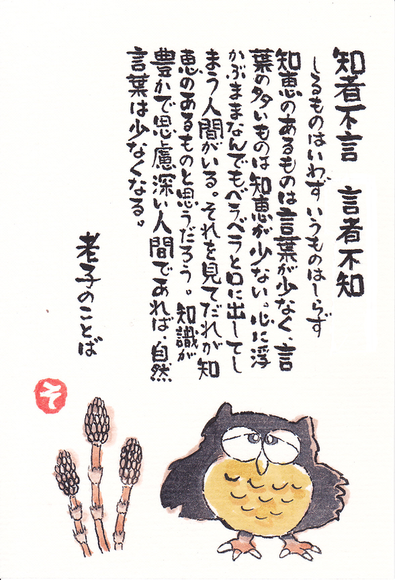 知者不言 言者不知
しるものはいわず いうものはしらず
知恵のあるものは言葉が少なく、言
葉の多いものは知恵が少ない。心に浮
かぶままなんでもベラベラと口に出してし
まう人間がいる。それを見てだれが知
恵のあるものと思うだろう。知識が
豊かで思慮深い人間であれば、自然
言葉は少なくなる。
老子のことば
そ